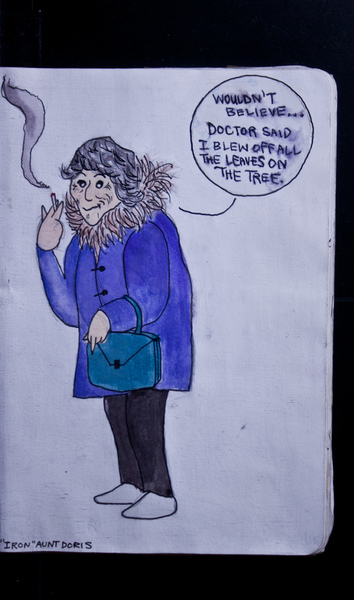 WOULDN'T
BELIEVE...
DOCTOR SAID
I BLEW OFF ALL
THE LEAVES ON
THE TREE.
"IRON" AUNT DORIS